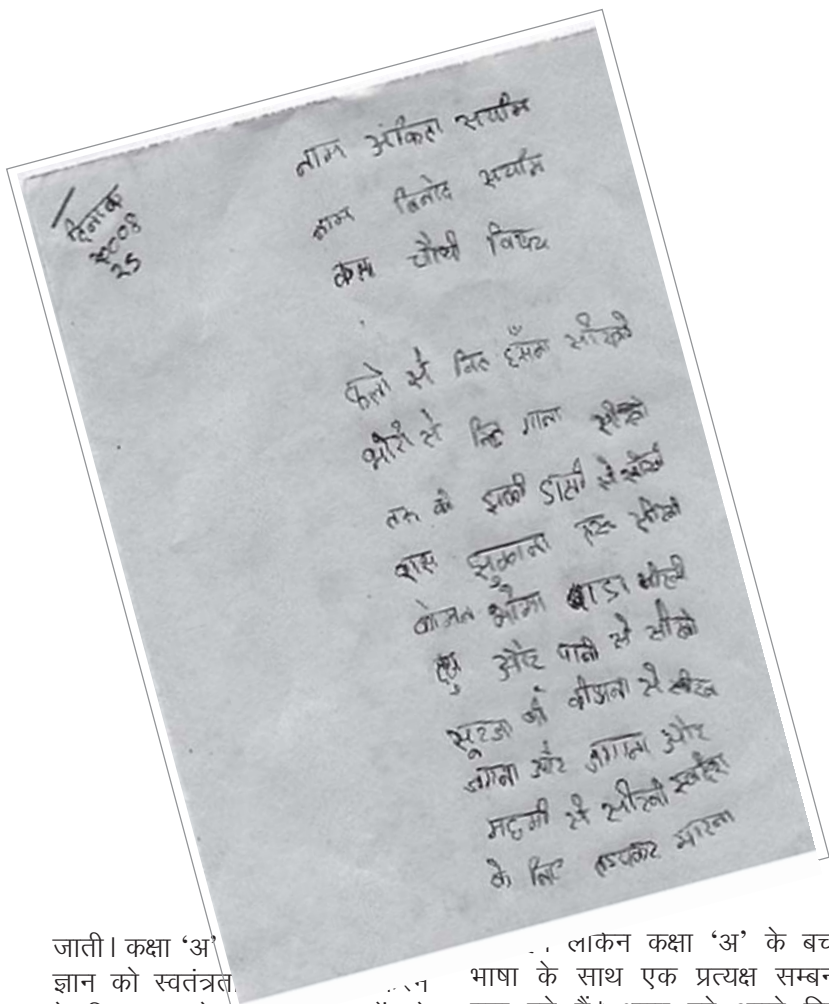 दिनांक
2008
25
नाम अंकिता सयाम
नाम विनोद सयाम
कक्षा चौथी विषय
फुलो से नित हँसना सीखो
भोरों से नित गाना सीखो
तरू की झुकी डाली से सीखो
शीस झुकाना
कोमल
दुध और पानी से सीखो
सूरज की से सीख
जगना और जगाना और
मछली से सीखो स्वदेश
के लिए तड़पकर मारना
जाती। कक्षा ‘अ’
ज्ञान को स्वतंत्रत
लेकिन कक्षा ‘अ’ के बच
भाषा के साथ एक प्रत्यक्ष सम्बन